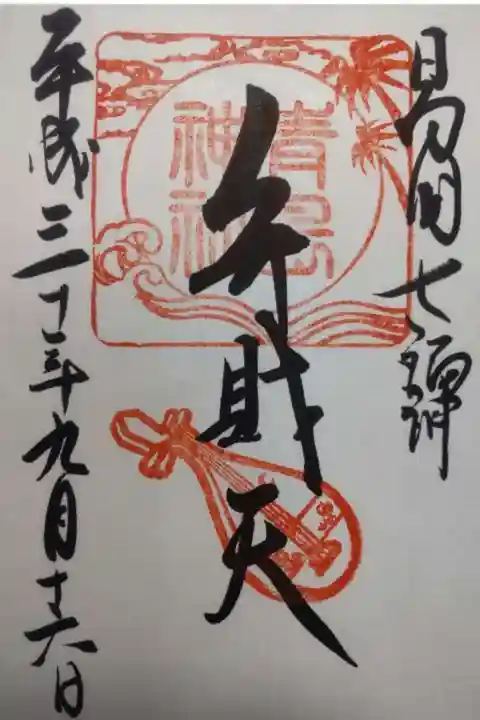 日向国七福神
青島
神社
弁財天
平成三十年九月十六日